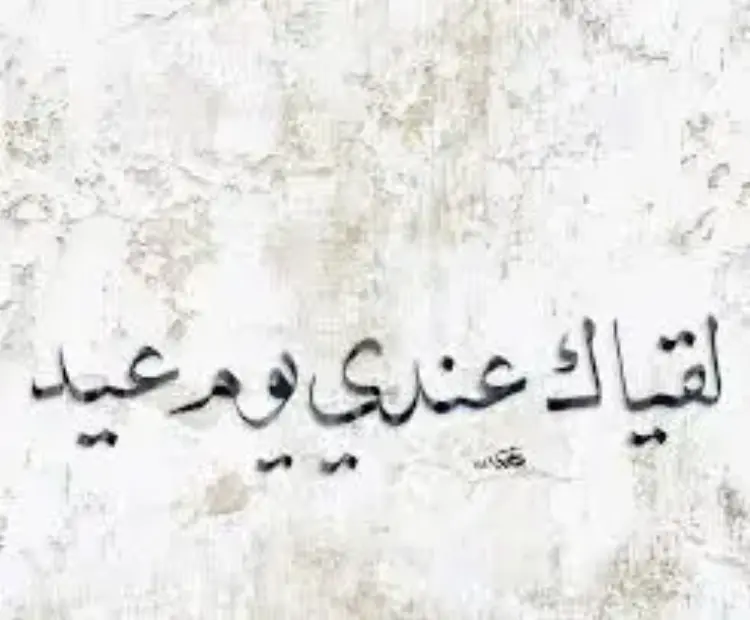 لقياك عندي يوم عيد